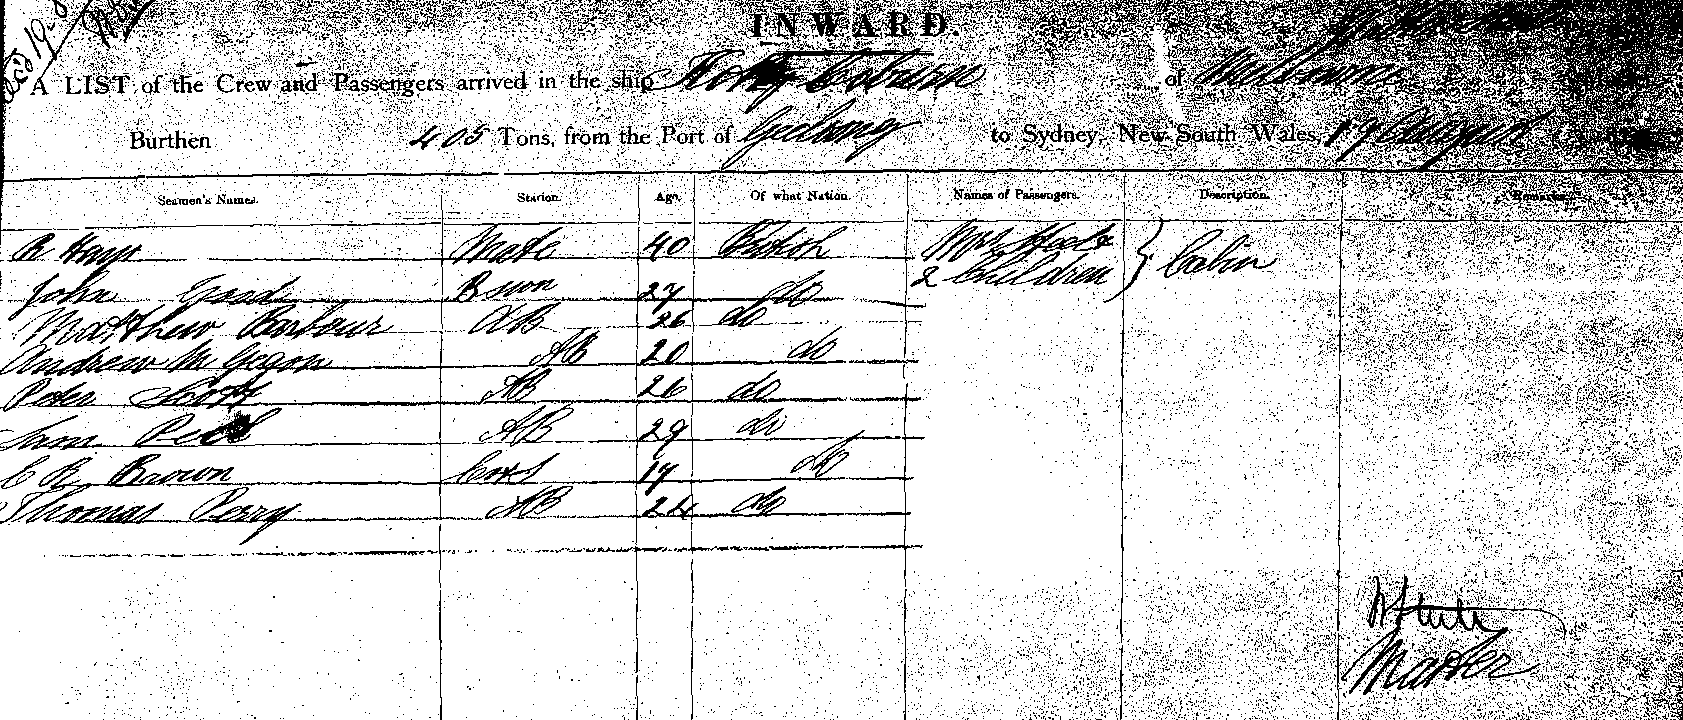 INWARD.
A LIST of the Crew and Passengers arrived in the ship of Melbourne
Burthen 405 Tons, from the Port of Geelong to Sydney, New South Wales, 19 August
Seamen's Names. Station. Age. Of what Nation. Names of Passengers. Description. Remarks.
R Hays Mate 40 British Mrs
John Good Bswn 27 do 2 Children } Cabin
Matthew Barbour AB 26 do
Andrew AB 20 do
Peter Scott AB 26 do
AB 29 do
C R Brown 17 do
Thomas Perry AB 24 do
Master